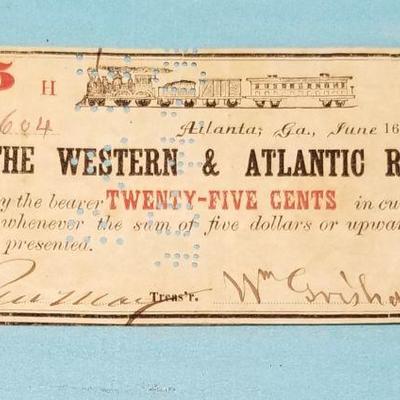 5 H
604
Atlanta, Ga., June 16
THE WESTERN & ATLANTIC R
y the bearer TWENTY-FIVE CENTS in cu
whenever the sum of five dollars or upwa
presented.
May Treas'r. Wm Grisha